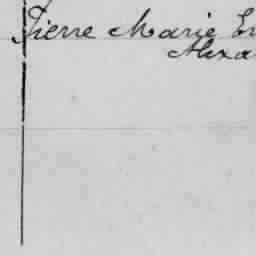 Pierre Marie Er
Alexa